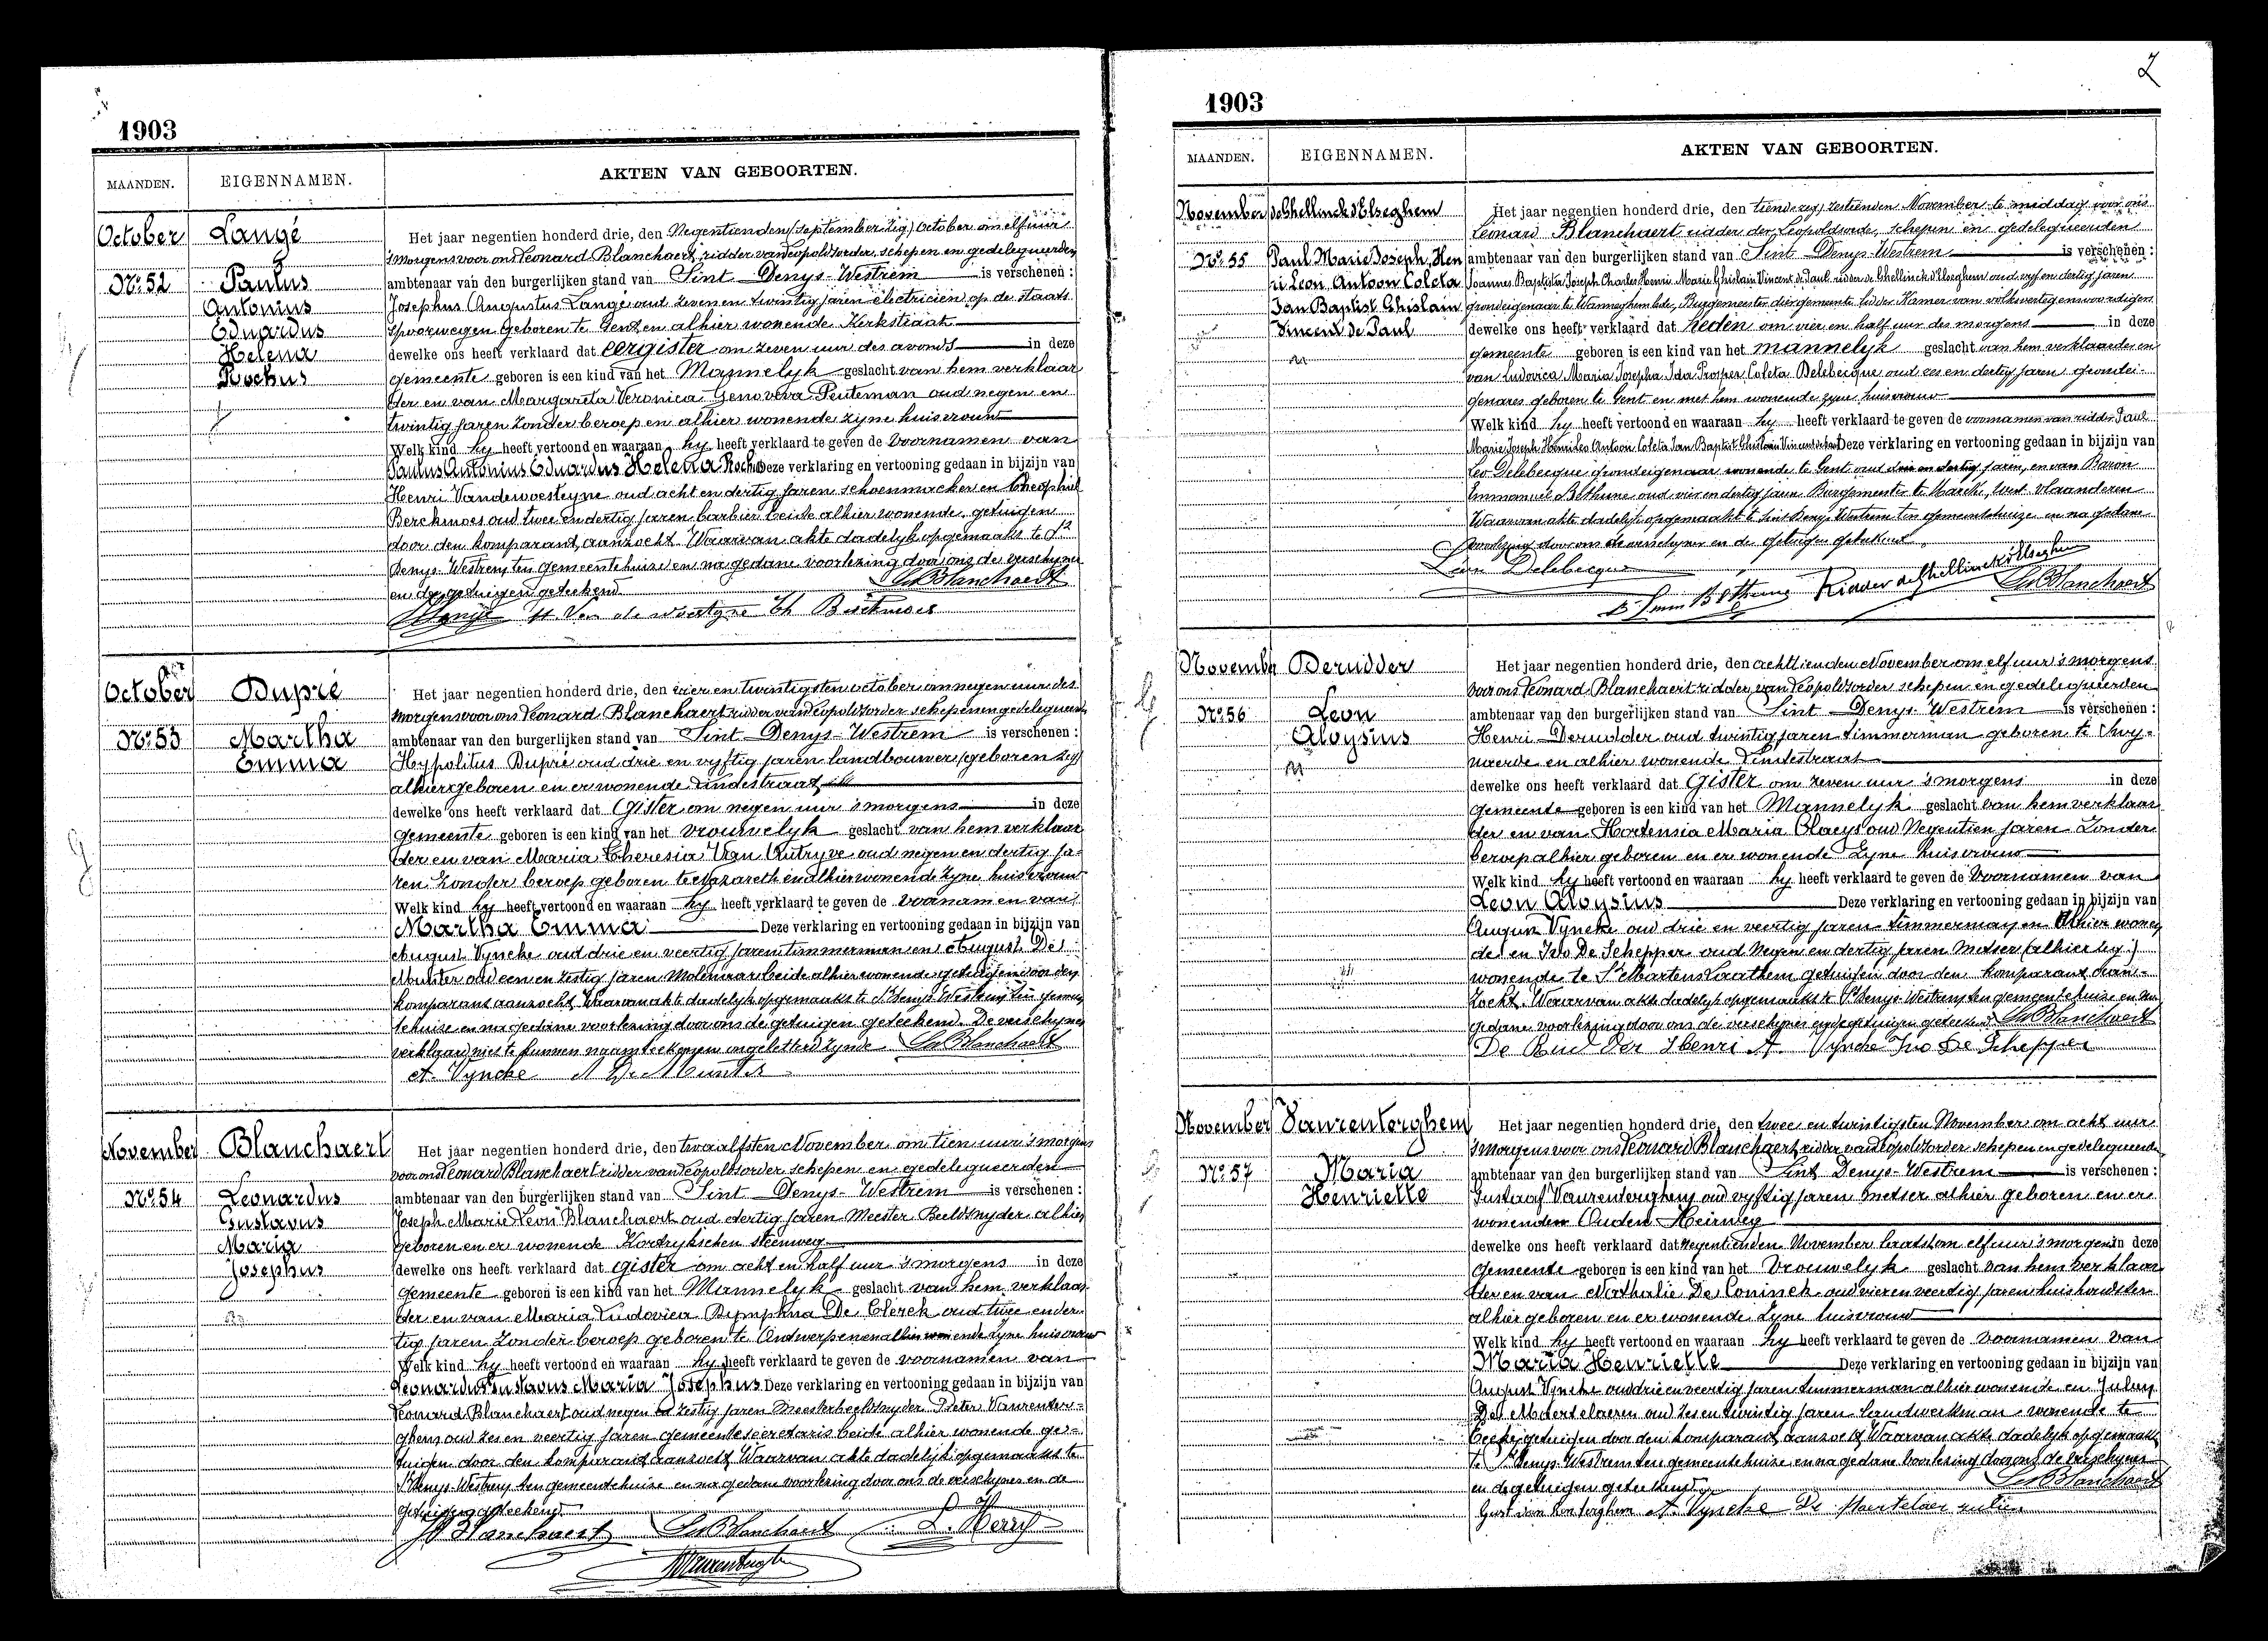 1903
MAANDEN. EIGENNAMEN. AKTEN VAN GEBOORTEN.
October Langé
Nº 52 Paulus
Antonius
Eduardus
Helena
Rochus
Het jaar negentien honderd drie, den Negentienden (september zeg) October om elf uur
'smorgens voor ons Leonard Blanchaert, ridder van Leopoldsorder schepen en gedelegueerden
ambtenaar van den burgerlijken stand van Sint-Denys-Westrem is verschenen :
Josephus Augustus Langé oud zeven en twintig jaren electricien op de staats
spoorwegen geboren te Gent en alhier wonende Kerkstraat
dewelke ons heeft verklaard dat eergister om zeven uur des avonds in deze
gemeente geboren is een kind van het Mannelyk geslacht van hem verklaar
der en van Margareta Veronica Genoveva Peuteman oud negen en
twintig jaren zonder beroep en alhier wonende zyne huisvrouw
Welk kind hy heeft vertoond en waaraan hy heeft verklaard te geven de voornamen van
Paulus Antonius Eduardus Helena Rochus Deze verklaring en vertooning gedaan in bijzijn van
Henri Vandewoesteyne oud acht en dertig jaren schoenmaker en Theophiel
Berckmoes oud twee en dertig jaren barbier beide alhier wonende getuigen
door den komparant aanzocht. Waarvan akte dadelyk opgemaakt te St
Denys-Westrem ten gemeentehuize en na gedane voorlezing door ons de verschyner
en de getuigen geteekend
Lr Blanchaert
H. Van de woestyne Th Berckmoes
October Dupré
Nº 53 Martha
Emma
Het jaar negentien honderd drie, den vier en twintigsten october om negen uur des
morgens voor ons Leonard Blanchaert ridder van Leopoldsorder schepen en gedelegueerden
ambtenaar van den burgerlijken stand van Sint-Denys-Westrem is verschenen :
Hypolitus Dupré oud drie en vyftig jaren landbouwer (geboren zeg)
alhier geboren en er wonende Lindestraat
dewelke ons heeft verklaard dat Gister om negen uur 's morgens in deze
gemeente geboren is een kind van het vrouwelyk geslacht van hem verklaar
der en van Maria Theresia Van Autryve oud negen en dertig ja-
ren zonder beroep geboren te Nazareth en alhier wonende zyne huisvrouw
Welk kind hy heeft vertoond en waaraan hy heeft verklaard te geven de voornamen van
Martha Emma Deze verklaring en vertooning gedaan in bijzijn van
August Vyncke oud drie en veertig jaren timmerman en August De
Munter oud een en zestig jaren Molenaar beide alhier wonende getuigen door den
komparant aanzocht. Waarvan akte dadelyk opgemaakt te St Denys-Westrem ten gemeen
tehuize en na gedane voorlezing door ons de getuigen geteekend. De verschyner
verklaard niet te kunnen naamteekenen ongeletterd zynde Lr Blanchaert
A. Vyncke A De Munter
November Blanchaert
Nº 54 Leonardus
Gustavus
Maria
Josephus
Het jaar negentien honderd drie, den twaalfsten November om tien uur 's morgens
voor ons Leonard Blanchaert ridder van Leopoldsorder schepen en gedelegueerden
ambtenaar van den burgerlijken stand van Sint-Denys-Westrem is verschenen :
Joseph Marie Leon Blanchaert oud dertig jaren Meester Beeldsnyder alhier
geboren en er wonende Kortrykschen steenweg
dewelke ons heeft verklaard dat gister om acht en half uur 's morgens in deze
gemeente geboren is een kind van het Mannelyk geslacht van hem verklaar
der en van Maria Ludovica Dymphna De Clerck oud twee en der
tig jaren zonder beroep geboren te Andwerpen en alhier wonende zyne huisvrouw
Welk kind hy heeft vertoond en waaraan hy heeft verklaard te geven de voornamen van
Leonardus Gustavus Maria Josephus Deze verklaring en vertooning gedaan in bijzijn van
Leonard Blanchaert oud negen en zestig jaren Meesterbeeldsnyder Pieter Vaurenter-
ghem oud zes en veertig jaren gemeentesecretaris beide alhier wonende ge-
tuigen door den komparant aanzocht. Waarvan akte dadelijk opgemaakt te
St Denys-Westrem ten gemeentehuize en na gedane voorlezing door ons de verschyner en de
getuigen geteekend
Blanchaert Lr Blanchaert
1903
MAANDEN. EIGENNAMEN. AKTEN VAN GEBOORTEN.
November de Ghellinck d'Elseghem
Nº 55 Paul Marie Joseph Hen
ri Leon Antoon Coleta
Jan Baptist Ghislain
Vincent de Paul
Het jaar negentien honderd drie, den tiende zeg zestienden November te middag voor ons
Leonard Blanchaert ridder der Leopoldsorde, schepen en gedelegueerden
ambtenaar van den burgerlijken stand van Sint Denys-Westrem is verschenen :
Joannes Baptista Joseph Charles Henri Marie Ghislain Vincent de Paul ridder de Ghellinck d'Elseghem oud vyf en dertig jaren
grondeigenaar te Wanneghem-lede, Burgemeester dier gemeente lid der Kamer van volksvertegenwoordigers
dewelke ons heeft verklaard dat heden om vier en half uur des morgens in deze
gemeente geboren is een kind van het mannelyk geslacht van hem verklaarder en
van Ludovica Maria Josepha Ida Prosper Coleta Delebecque oud zes en dertig jaren grondei-
genares geboren te Gent en met hem wonende zyne huisvrouw
Welk kind hy heeft vertoond en waaraan hy heeft verklaard te geven de voornamen van ridder Paul
Marie Joseph Henri Leo Antoon Coleta Jan Baptist Ghislain Vincent de Paul Deze verklaring en vertooning gedaan in bijzijn van
Leo Delebecque grondeigenaar wonende te Gent oud drie en dertig jaren, en van Baron
Emmanuel Bethune oud vier en dertig jaren Burgemeester te Marcke, West-Vlaanderen
Waarvan akte dadelijk opgemaakt te Sint Denys Westrem ten gemeentehuize en na gedane
voorlezing door ons de verschyner en de getuigen geteekend
Léon Delebecque
Bn Emm Bethune Ridder de Ghellinck d'Elseghem Lr Blanchaert
November Derudder
Nº 56 Leon
Aloysius
Het jaar negentien honderd drie, den achttienden November om elf uur 's morgens
voor ons Leonard Blanchaert ridder van Leopoldsorder schepen en gedelegueerden
ambtenaar van den burgerlijken stand van Sint-Denys-Westrem is verschenen :
Henri Derudder oud twintig jaren timmerman geboren te Swy-
naerde en alhier wonende Lindestraat
dewelke ons heeft verklaard dat Gister om zeven uur 's morgens in deze
gemeente geboren is een kind van het Mannelyk geslacht van hem verklaar
der en van Hortensia Maria Claeys oud Negentien jaren Zonder
beroep alhier geboren en er wonende zyne huisvrouw
Welk kind hy heeft vertoond en waaraan hy heeft verklaard te geven de Voornamen van
Leon Aloysius Deze verklaring en vertooning gedaan in bijzijn van
August Vyncke oud drie en veertig jaren timmerman en Alhier wonen
de en Ivo De Schepper oud Negen en dertig jaren Metser (alhier zeg)
wonende te St Martens Laathem getuigen door den komparant aan-
zocht. Waarvan akte dadelyk opgemaakt te St Denys-Westrem ten gemeentehuize en na
gedane voorlezing door ons de verschyner en de getuigen geteekend Lr Blanchaert
De Rud der Henri A. Vyncke Ivo De Schepper
November Vaurenterghem
Nº 57 Maria
Henriette
Het jaar negentien honderd drie, den twee en twintigsten November om acht uur
's morgens voor ons Leonard Blanchaert, ridder van Leopoldsorder schepen en gedelegueerden
ambtenaar van den burgerlijken stand van Sint Denys-Westrem is verschenen :
Gustaaf Vaurenterghem oud vyftig jaren metser alhier geboren en er
wonenden Ouden Heirweg
dewelke ons heeft verklaard dat Negentienden November laatst om elf uur 's morgens in deze
gemeente geboren is een kind van het Vrouwelyk geslacht van hem verklaar
der en van Nathalie De Coninck oud vier en veertig jaren huishoudster
alhier geboren en er wonende zyne huisvrouw
Welk kind hy heeft vertoond en waaraan hy heeft verklaard te geven de Voornamen van
Maria Henriette Deze verklaring en vertooning gedaan in bijzijn van
August Vyncke oud drie en veertig jaren timmerman alhier wonende en Julien
De Maertelaeren oud zes en twintig jaren Landwerkman wonende te
getuigen door den komparant aanzocht Waarvan akte dadelyk opgemaakt
te St Denys-Westrem ten gemeentehuize en na gedane voorlezing door ons de verschyner
en de getuigen geteekend Lr Blanchaert
Gust van A. Vyncke De Maertelaer julien